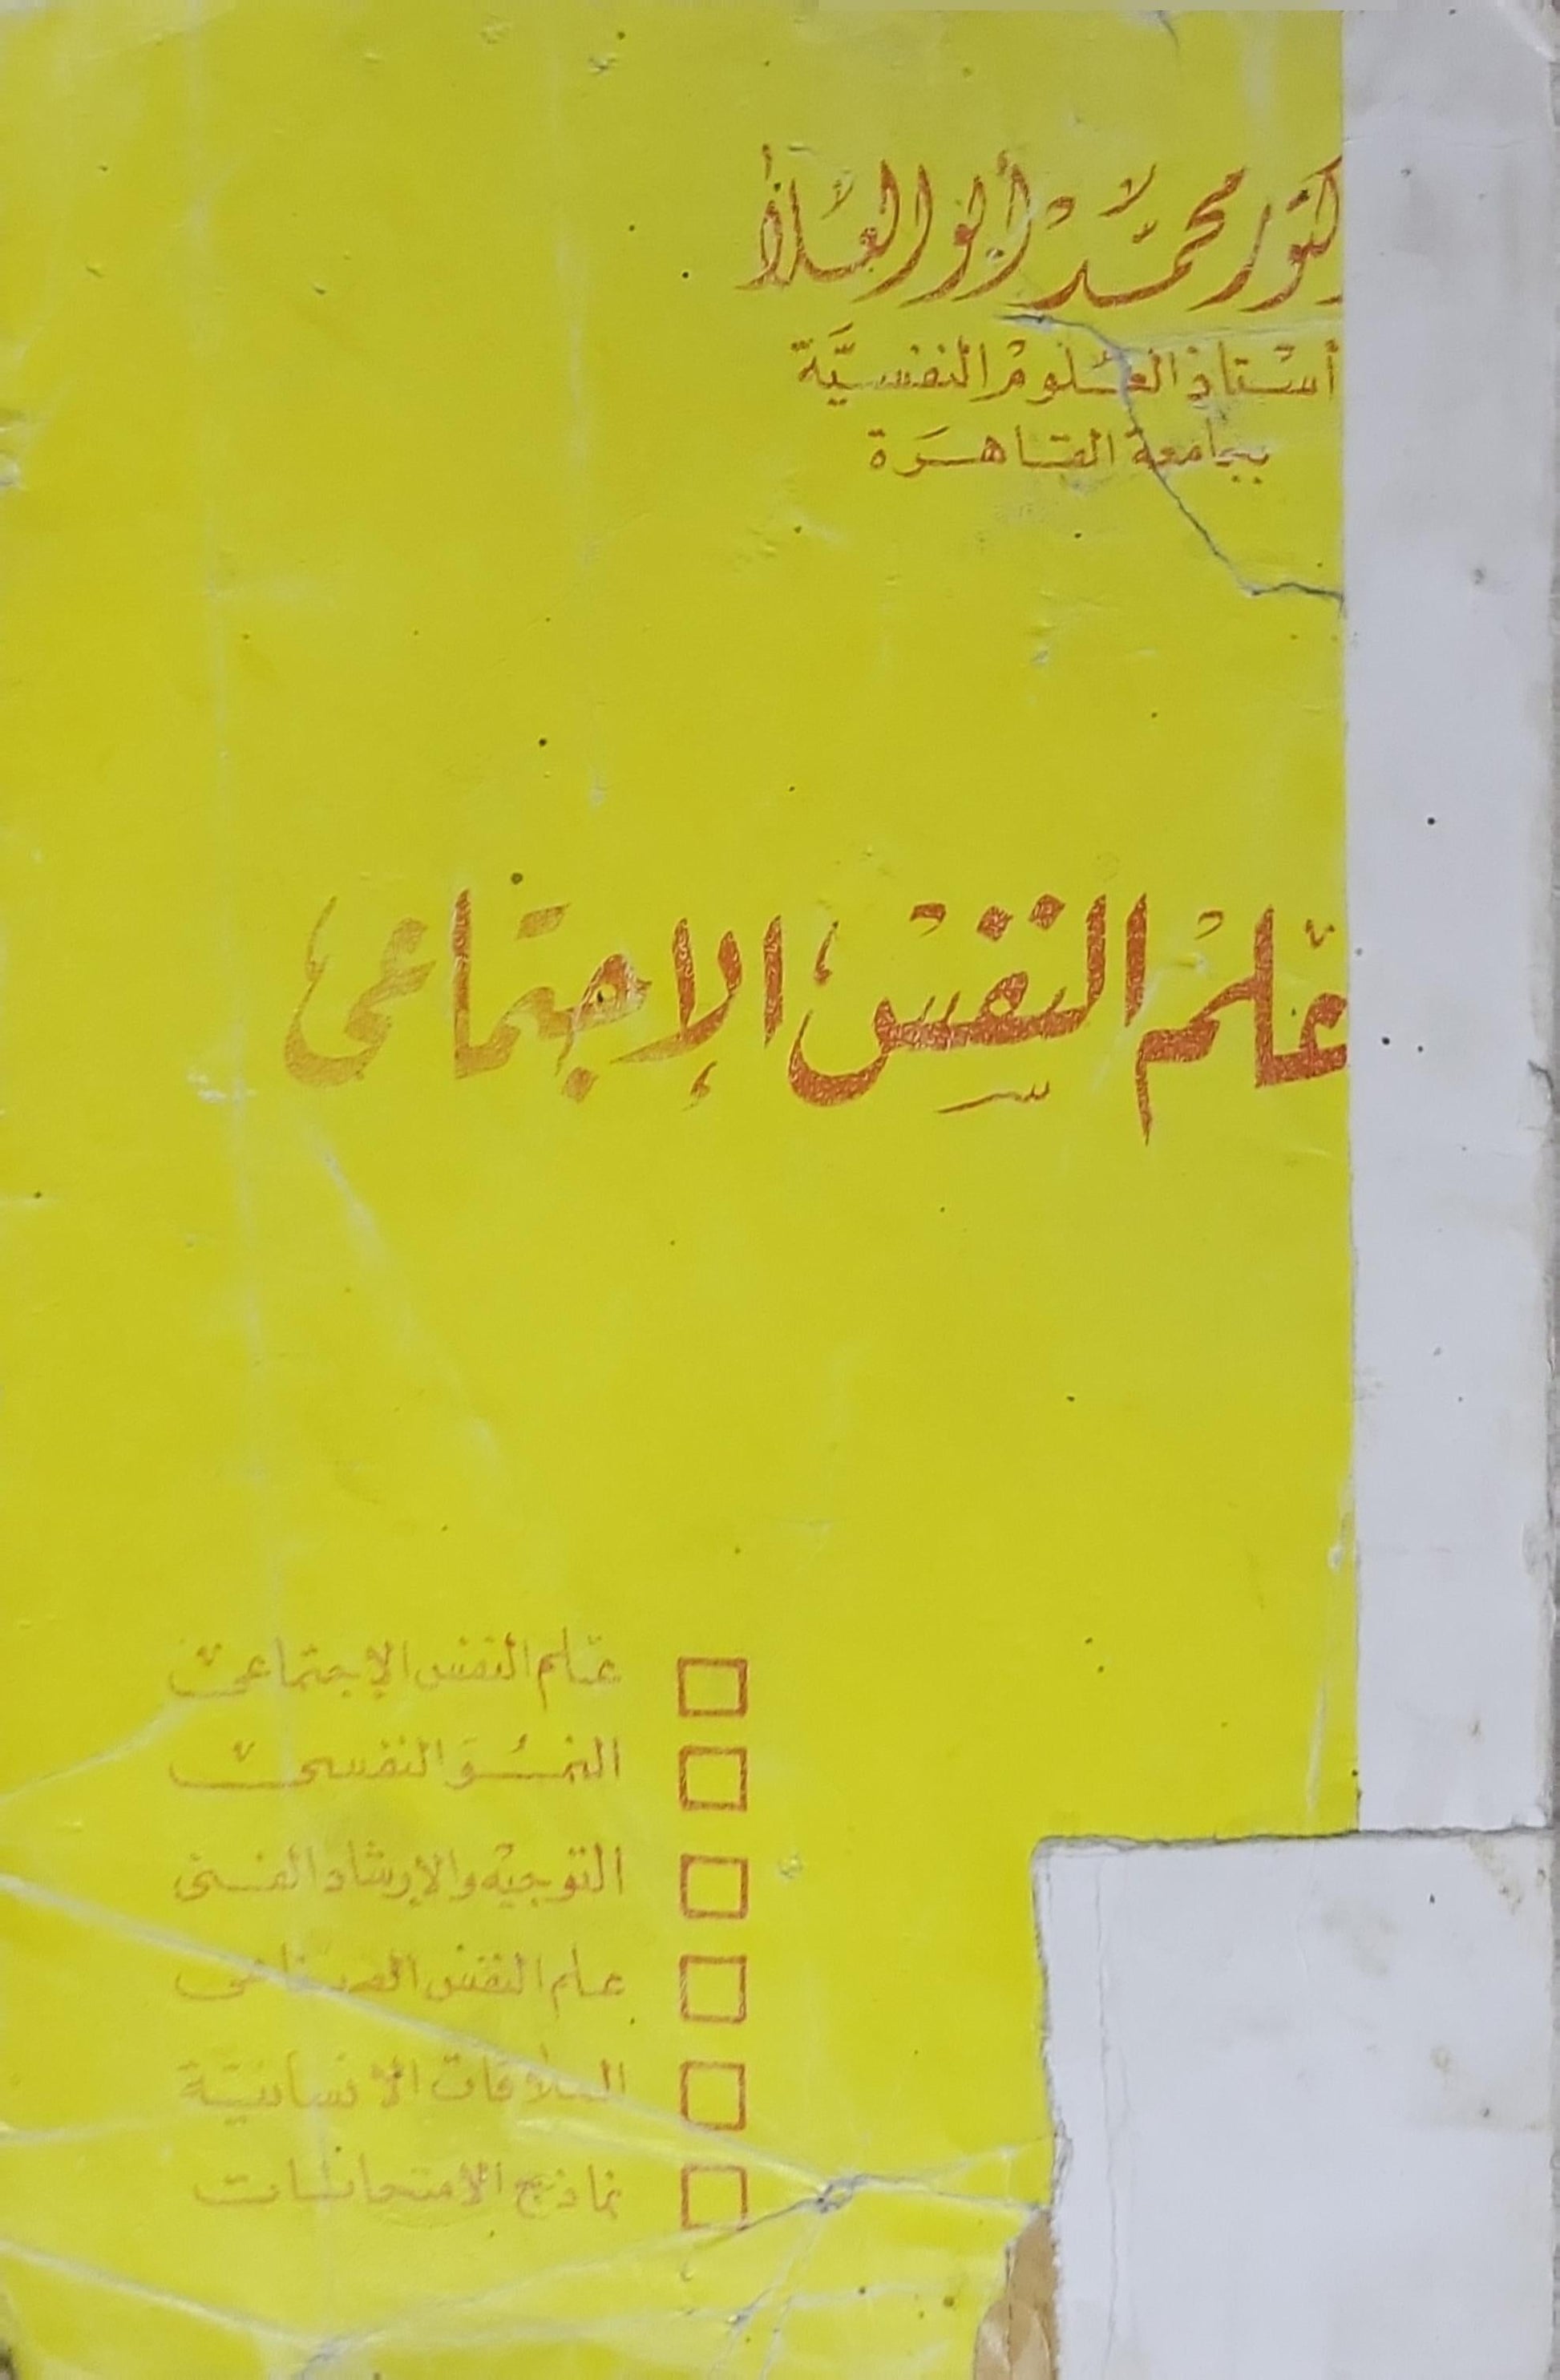 كتور محمد أبو العلا
أستاذ العلوم النفسية
بجامعة القاهرة
علم النفس الإجتماعى
علم النفس الإجتماعى
النمو النفسى
التوجيه والإرشاد الفنى
علم النفس الصناعى
العلاقات الانسانية
نماذج الامتحانات